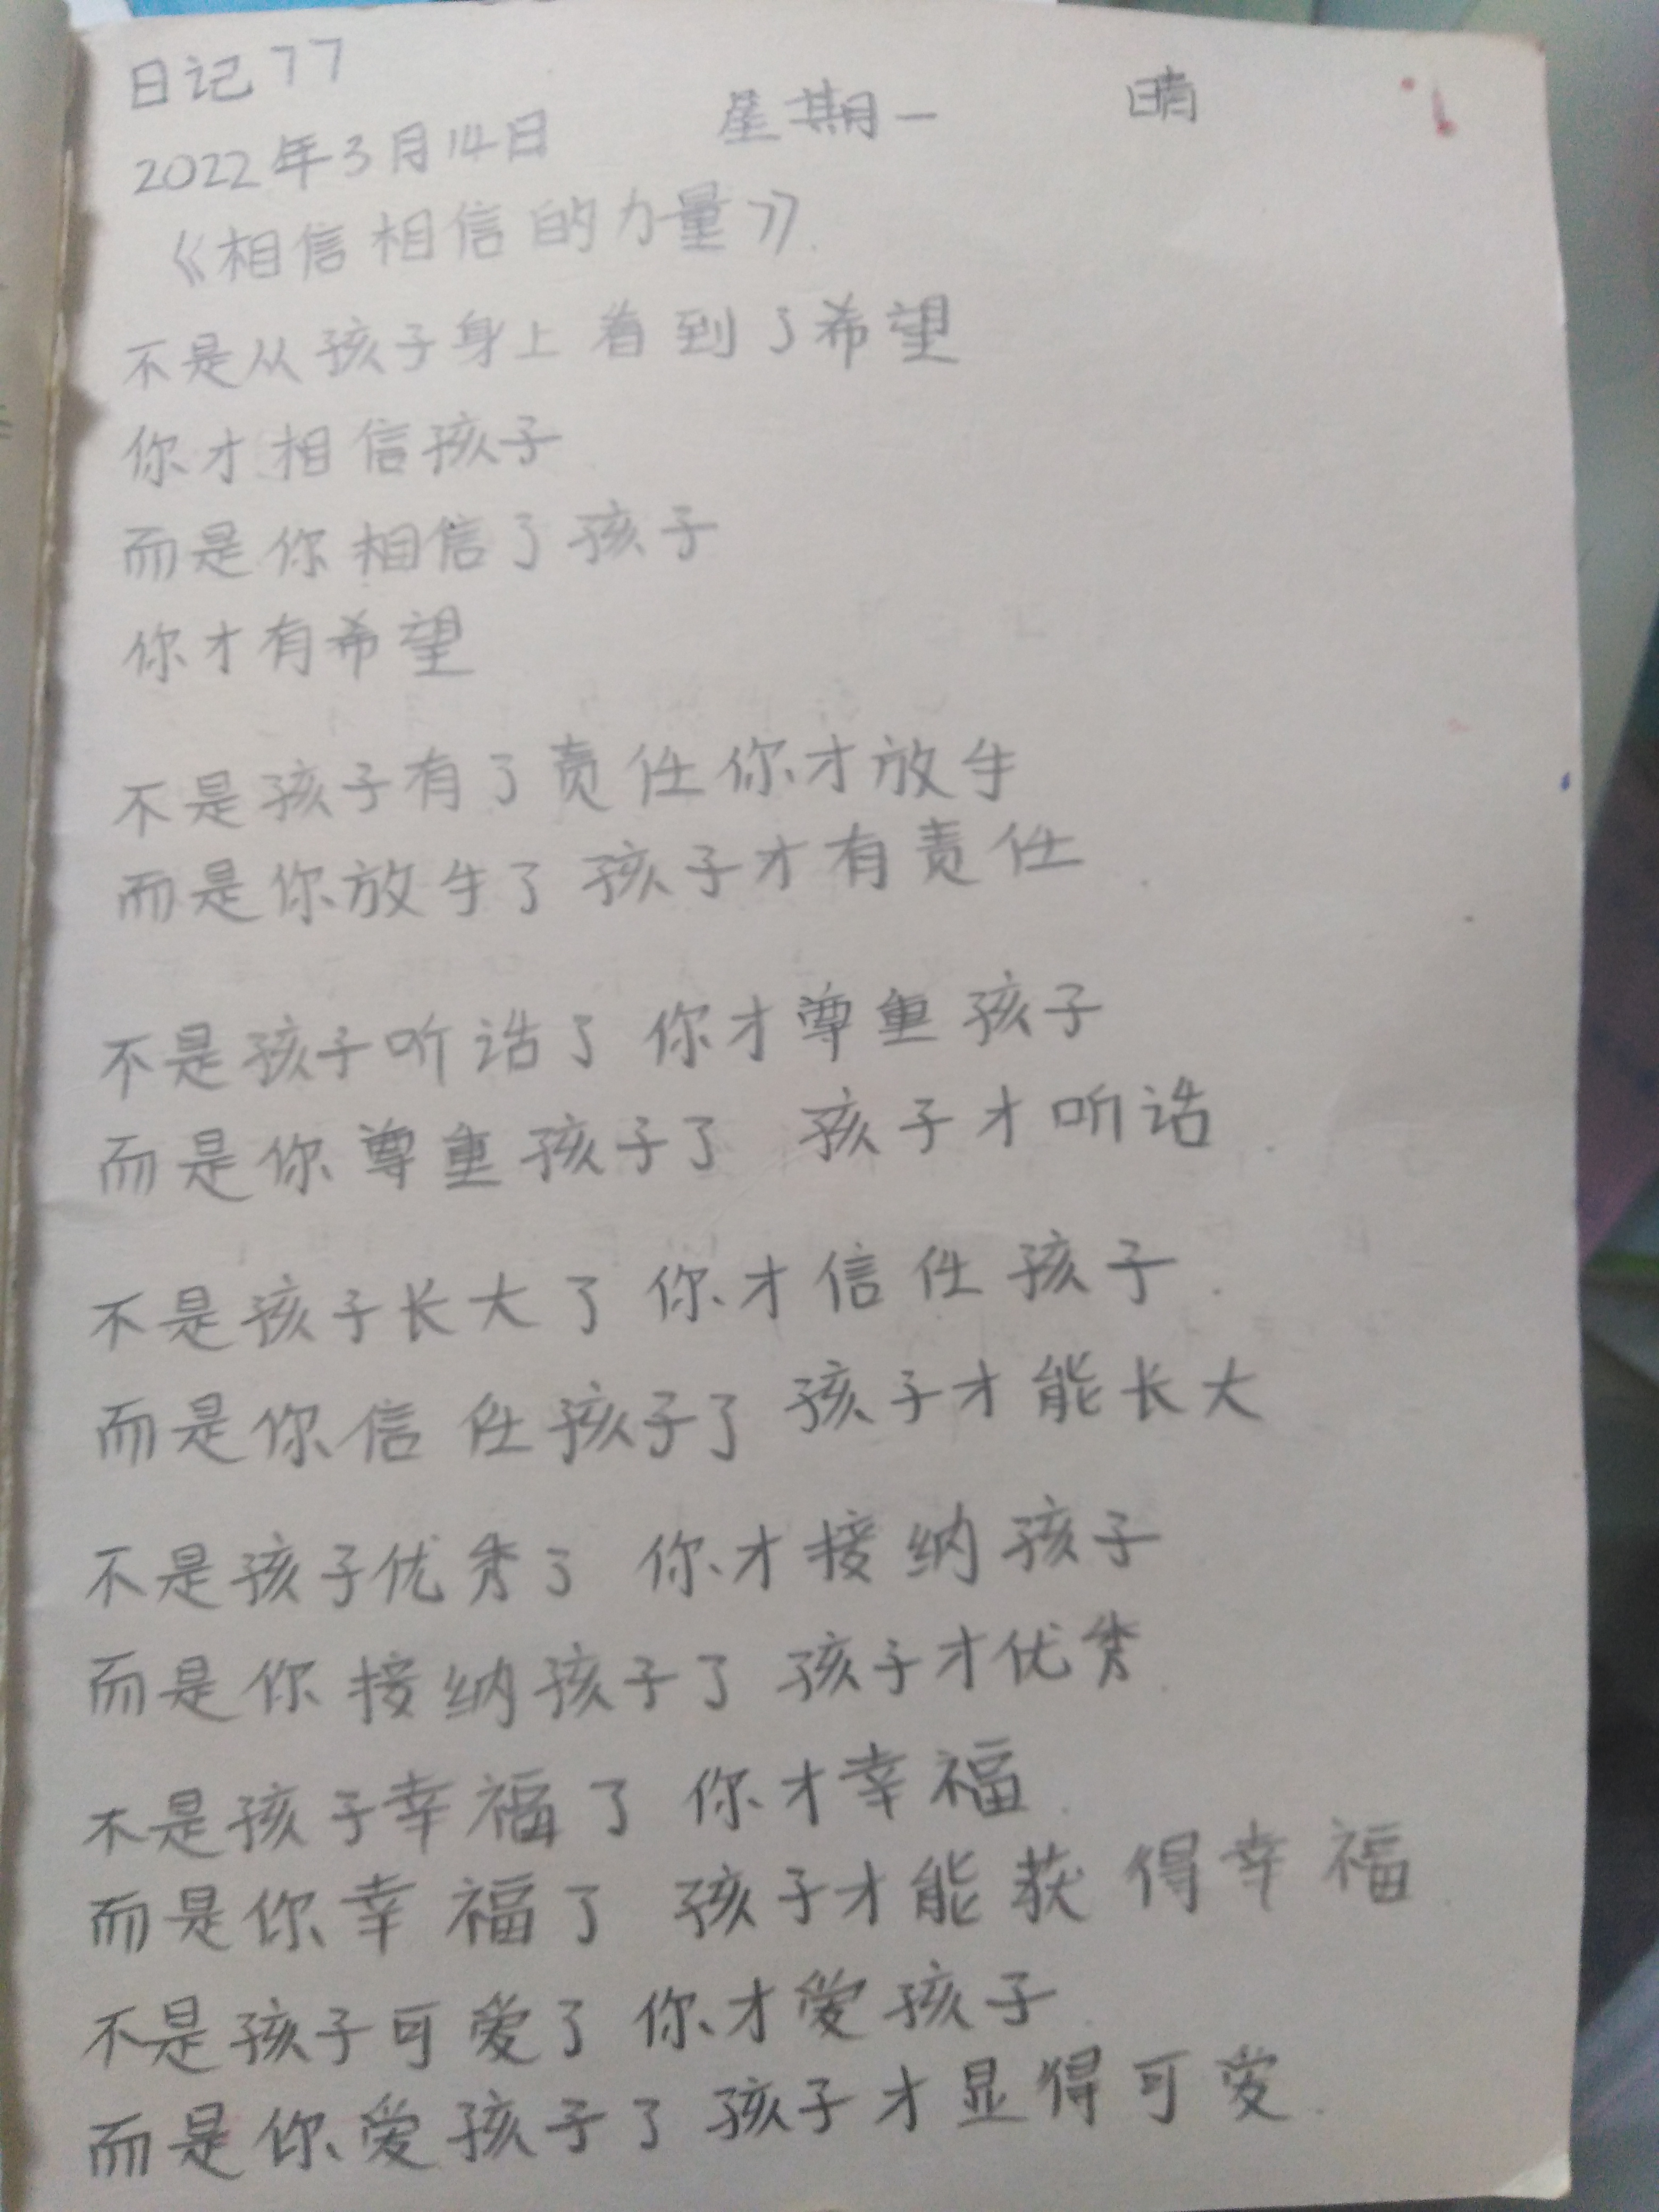 日记77
2022年3月14日 星期一 晴
《相信相信的力量》
不是从孩子身上看到了希望
你才相信孩子
而是你相信了孩子
你才有希望
不是孩子有了责任你才放手
而是你放手了孩子才有责任
不是孩子听话了 你才尊重孩子
而是你尊重孩子了 孩子才听话
不是孩子长大了 你才信任孩子
而是你信任孩子了 孩子才能长大
不是孩子优秀了 你才接纳孩子
而是你接纳孩子了 孩子才优秀
不是孩子幸福了 你才幸福
而是你幸福了 孩子才能获得幸福
不是孩子可爱了 你才爱孩子
而是你爱孩子了 孩子才显得可爱